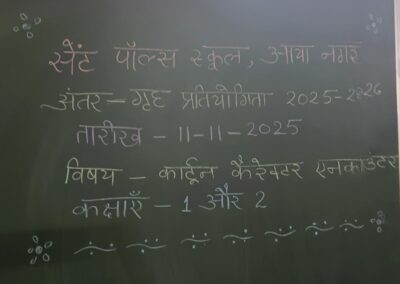 सेंट पॉल्स स्कूल, आया नगर
अंतर - गृह प्रतियोगिता 2025-2026
तारीख - 11-11-2025
विषय - कार्टून कैरेक्टर एनकाउंटर
कक्षाएँ - 1 और 2